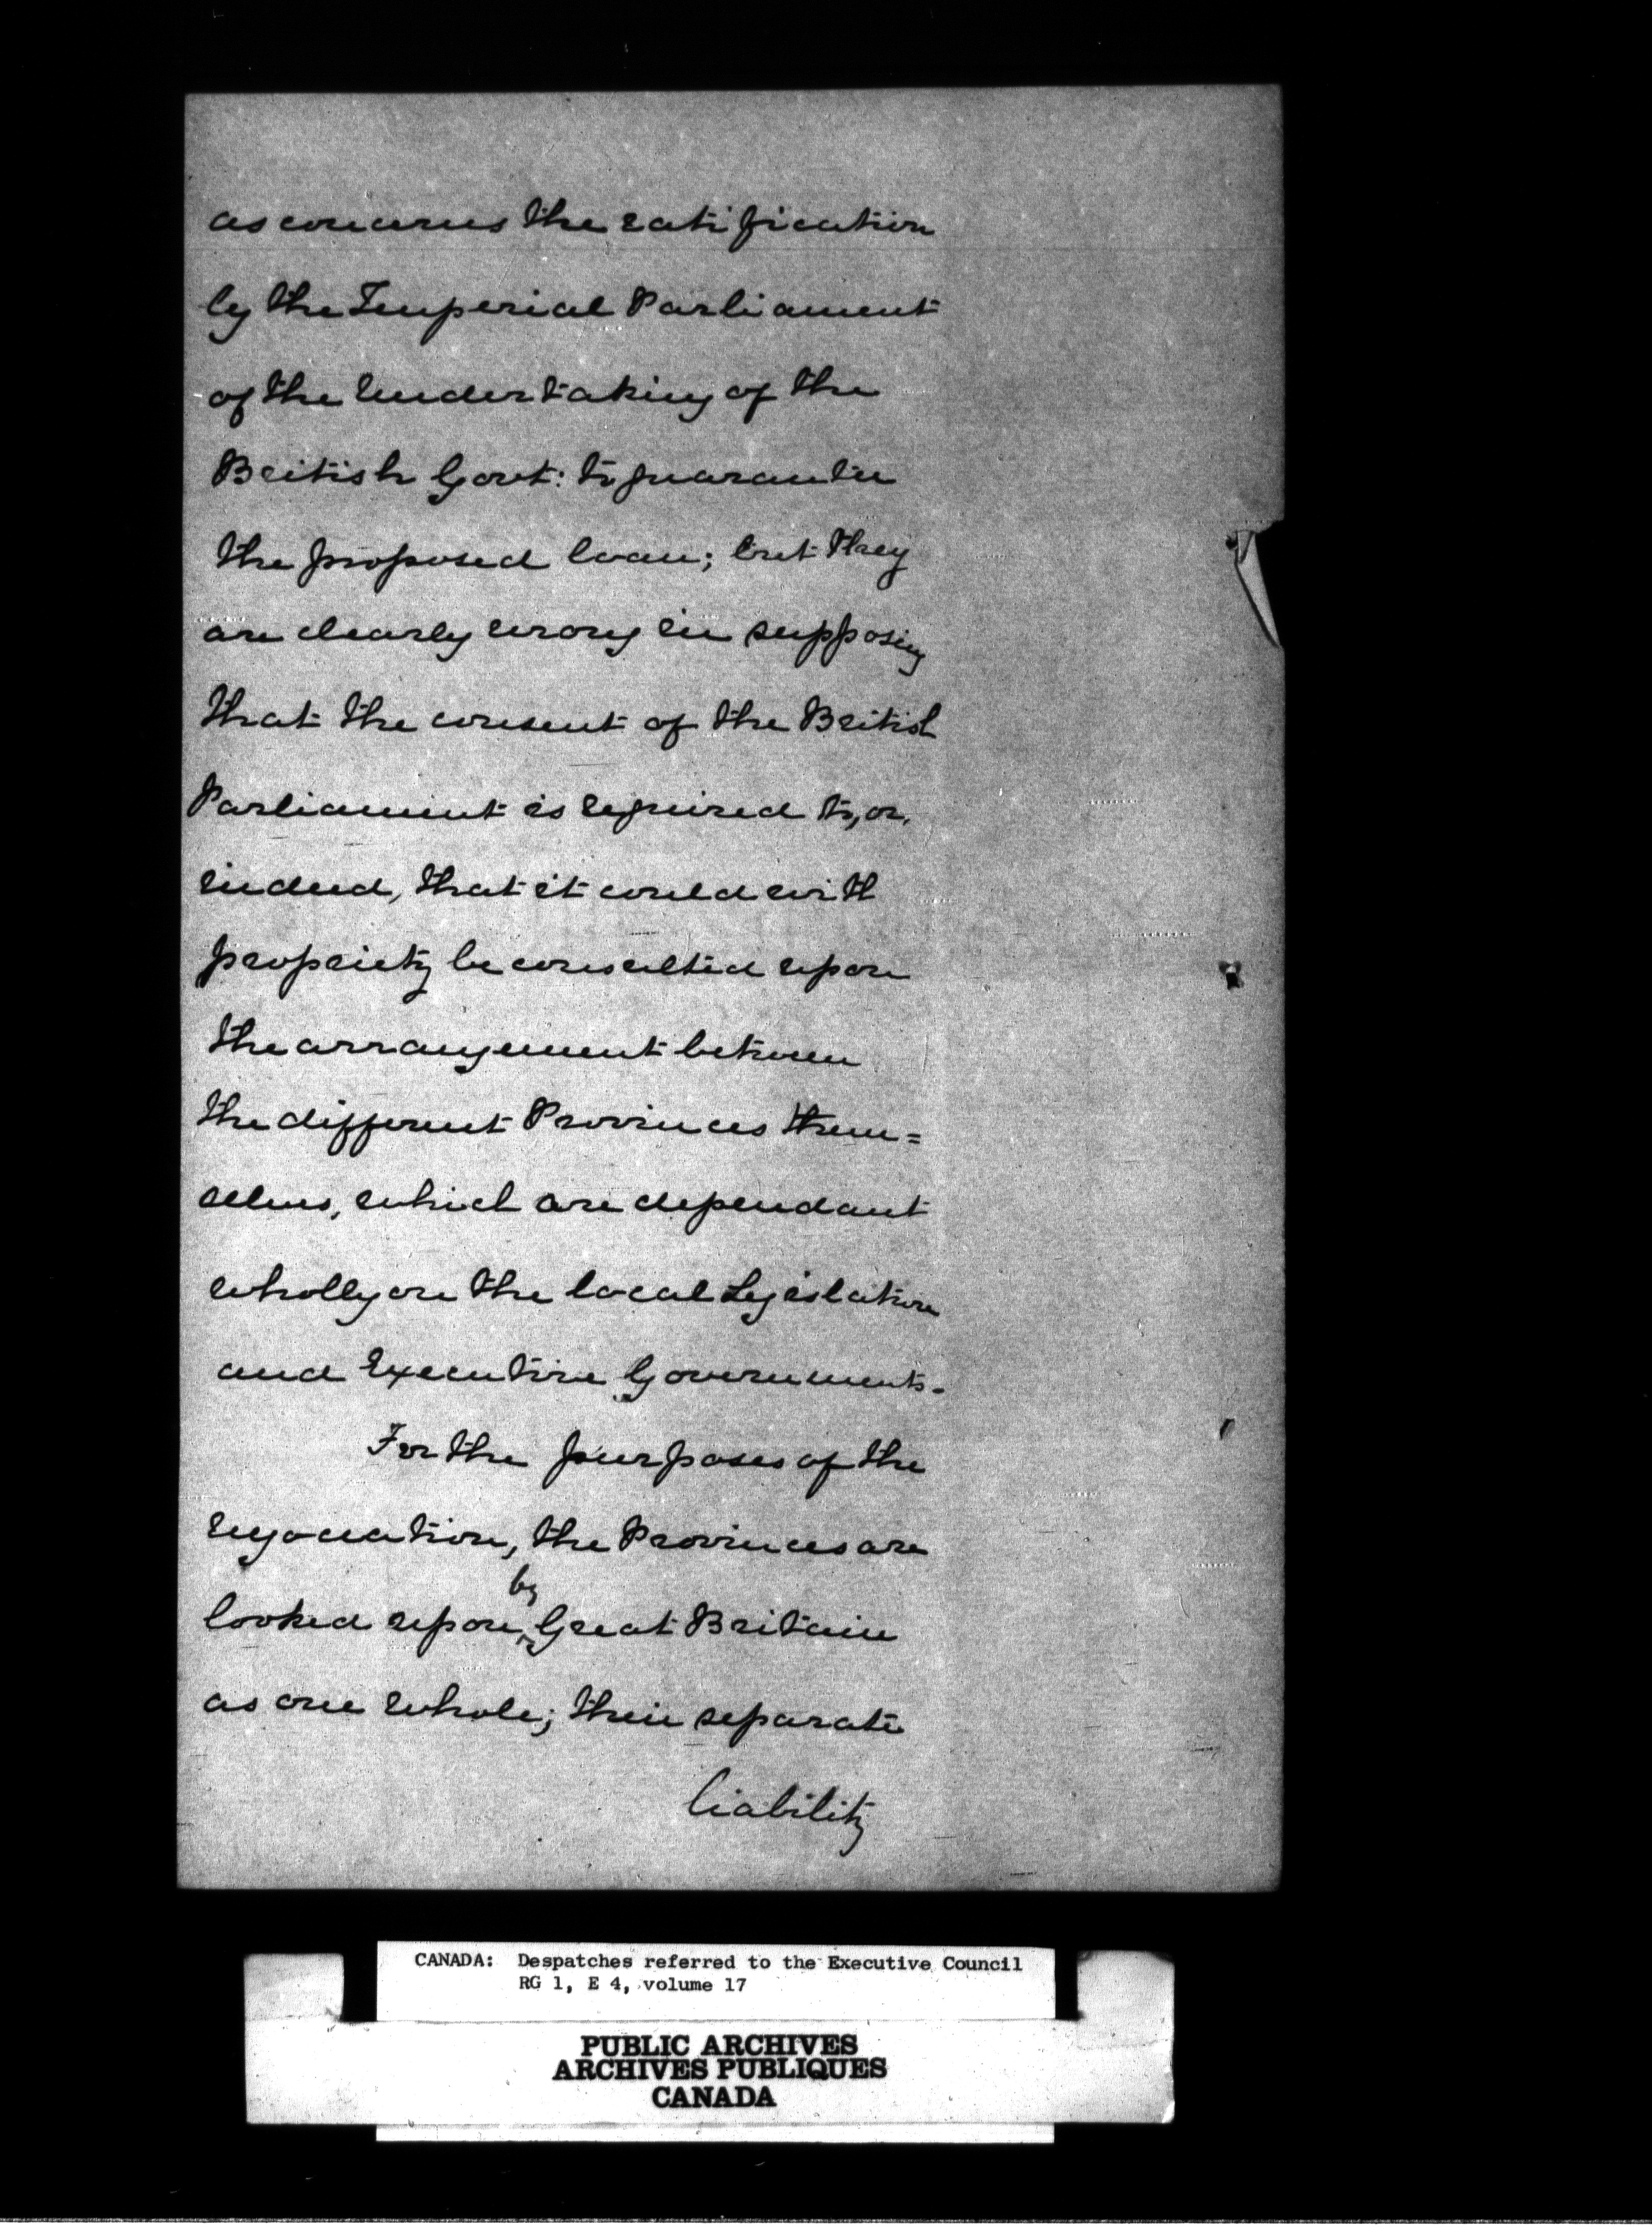 as concerns the ratification
by the Imperial Parliament
of the undertaking of the
British Govt: to guarantee
the proposed loan; but they
are clearly wrong in supposing
that the consent of the British
Parliament is required to, or,
indeed, that it could with
propriety be consulted upon
the arrangement between
the different Provinces them=
selves, which are dependant
wholly on the local Legislature
and Executive Governments.
For the purposes of the
negociation, the Provinces are
by
looked upon, Great Britain
as one whole; their separate
liability
CANADA: Despatches referred to the Executive Council
RG 1, E 4, volume 17
PUBLIC ARCHIVES
ARCHIVES PUBLIQUES
CANADA